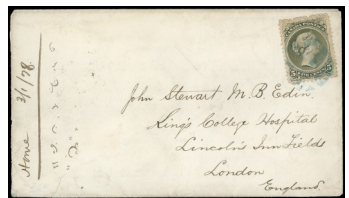 Home 3/1/78.
John Stewart M.B. Edin.
King's College Hospital
Lincoln's Inn Fields
London
England